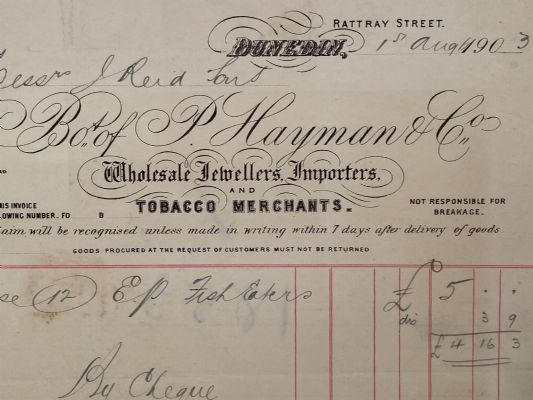 RATTRAY STREET.
DUNEDIN, 1st Aug 1903
Messrs J Reid
Bot. of P. Hayman & Co.
Wholesale Jewellers, Importers,
AND
TOBACCO MERCHANTS.
HIS INVOICE
LOWING NUMBER. FO B
NOT RESPONSIBLE FOR
BREAKAGE.
laim will be recognised unless made in writing within 7 days after delivery of goods
GOODS PROCURED AT THE REQUEST OF CUSTOMERS MUST NOT BE RETURNED
se 12 EP Fish Eaters £ 5 . .
dis 3 9
£4 16 3
By Cheque